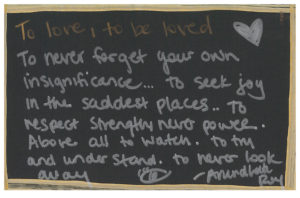 To love, to be loved
To never forget your own
insignificance... to seek joy
in the saddest places.. To
respect strength never power.
Above all to watch. to try
and understand. to never look
away
- Arundhati
Roy